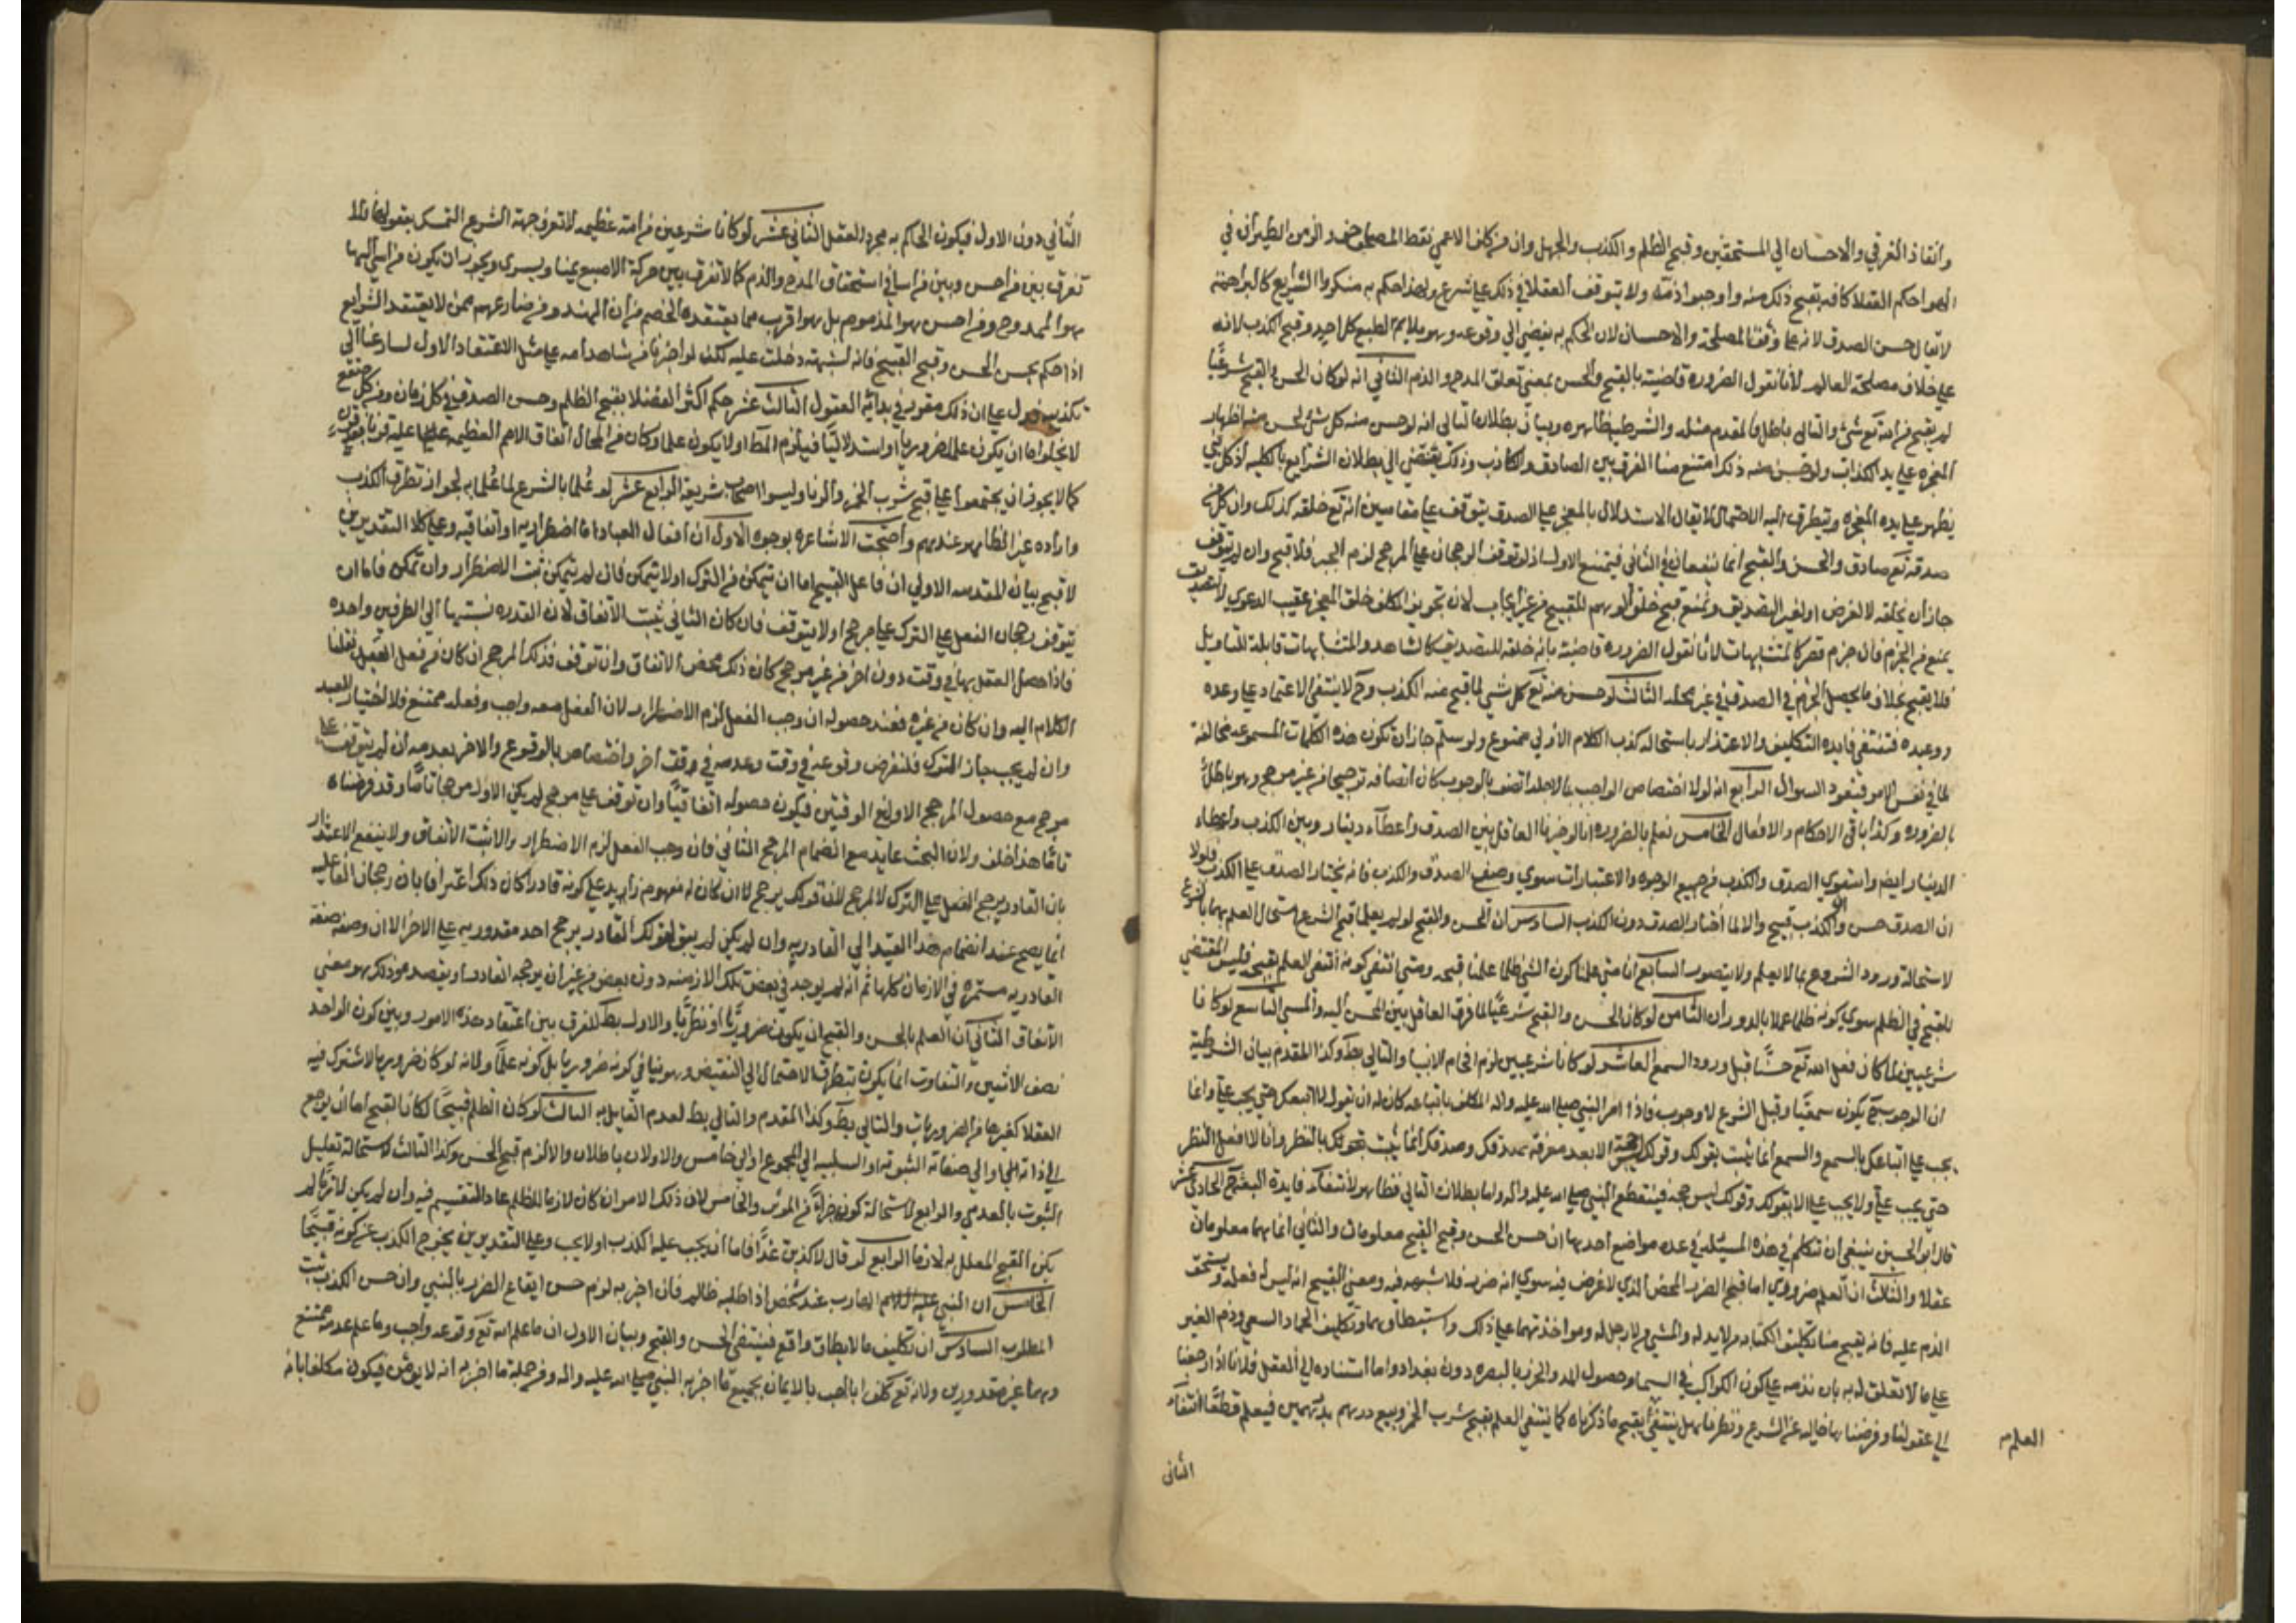 وانقاذ الغرقي والاحسان الي المستحقين وقبح الظلم والكذب والجهل وان من كلف الاعمي نقط المصاحف والزمن الطيران في
الهوا حكم العقلا كافه بقبح ذلك منه واوجبوا ذمه ولا يتوقف العقلا في ذلك علي شرع ولهذا حكم به منكروا الشرايع كالبراهمة
لا يقال حسن الصدق لانه علي وفق المصلحة والاحسان لان الحكم به يفضي الي وقوعه وهو ملايم لطبع كل احد وقبح الكذب لانه
علي خلاف مصلحة العالم لانا نقول الضرورة قاضية بالقبح والحسن بمعني تعلق المدح والذم الثاني انه لو كان الحسن والقبح شرعيا
لم يقبح من الله تع شي والتالي باطل فالمقدم مثله والشرطية ظاهره وبيان بطلان التالي انه لو حسن منه كل شي لحسن منه اظهار
المعجزه علي يد الكذاب ولو حسن منه ذلك امتنع منا الفرق بين الصادق والكاذب وذلك يقتضي الي بطلان الشرايع بالكليه اذ كل نبي
يظهر علي يده المعجزه ويتطرق اليه الاحتمال لا يقال الاستدلال بالمعجز علي الصدق يتوقف علي مقامين انه تع خلقه كذلك وان كل من
صدقه تع صادق والحسن والقبح انما ينفعان في الثاني فيمتنع الاول اذ لو توقف الرجحان علي المرجح لزم الجبر فلا قبح وان لم يتوقف
جاز ان يخلقه لا لغرض او لغير التصديق ونمنع قبح خلق الموهم للقبيح من غير ايجاب لان تجويز المكلف خلق المعجز عقيب الدعوي لا لتصديق
يمنع من الجزم فان جزم قصر كالمتشابهات لانا نقول الضروره قاضية بانه خلقه للتصديق كالشاهد والمتشابهات قابلة للتاويل
فلا يقبح بخلاف ما يحصل الجزم في الصدق في غير محله الثالث لو حسن منه تع كل شي لما قبح منه الكذب وح لا ينتفي الاعتماد علي وعده
ووعيده فتنتفي فايده التكليف والاعتذار باستحاله كذب الكلام الازلي ممنوع ولو سلم جاز ان تكون هذه الكلمات المسموعه مخالفة
لما في نفس الامر فيعود السوال الرابع انه لولا اختصاص الواجب بما لاجله اتصف بالوجوب كان اتصافه ترجيحا من غير مرجح وهو باطل
بالضروره وكذا باقي الاحكام والافعال الخامس نعلم بالضروره انا لو خيرنا العاقل بين الصدق واعطاء دينار وبين الكذب واعطاء
الدينار ايضا واستوي الصدق والكذب من جميع الوجوه والاعتبارات سوي وصف الصدق والكذب فانه يختار الصدق علي الكذب فلولا
ان الصدق حسن والكذب قبيح والا لما اختار الصدق دون الكذب السادس ان الحسن والقبح لو لم يعلما قبل الشرع استحال العلم بهما بالشرع
لاستحالة ورود الشرع بما لا يعلم ولا يتصور السابع انا متي علمنا كون الشي ظلما علمنا قبحه ومتي انتفي كونه انتفي العلم بقبحه فليس المقتضي
للقبح في الظلم سوي كونه ظلما عملا بالدوران الثامن لو كان الحسن والقبح شرعيا لما فرق العاقل بين المحسن اليه والمسي التاسع لو كانا
شرعيين لما كان فعل الله تع حسنا قبل ورود السمع العاشر لو كانا شرعيين لزم افحام الانبيا والتالي بط وكذا المقدم بيان الشرطية
ان الوجوب ح يكون سمعيا وقبل الشرع لا وجوب فاذا امر النبي صلي الله عليه واله المكلف باتباعه كان له ان يقول لا اتبعك حتي يجب علي وانما
يجب علي اتباعك بالسمع والسمع انما يثبت بقولك وقولك ليس حجة الا بعد معرفة صدقك وصدقك انما يثبت بقولك بالنظر وانا لا افعل النظر
حتي يجب علي ولا يجب علي الا بقولك وقولك ليس حجه فينقطع النبي صلي الله عليه واله واما بطلان التالي فظاهر لانتفاء فايدة البعثة ح الحادي عشر
قال ابو الحسين ينبغي ان نتكلم في هذه المسيله في عده مواضع احدها ان حسن الحسن وقبح القبيح معلومان والثاني انما هما معلومان
عقلا والثالث ان العلم ضروري اما قبح الضرر المحض الذي لا غرض فيه سوي انه ضرر فلا شبهه فيه ومعني القبيح انه ليس له فعله ويستحق
الذم عليه فانه يقبح منا تكليف الكتابه من لا يد له والمشي من لا رجل له ومواخذتهما علي ذلك واستبطاوهما وتكليف الجماد السعي وذم الغير
علي ما لا تعلق له به بان نذمه علي كون الكواكب في السما وحصول المد والجزر بالبصره دون بغداد واما استناده الي العقل فلانا اذا رجعنا
الي عقولنا وفرضنا خالية عن الشرع ونظرنا هل ينتفي بقبح ما ذكرناه كما ينتفي العلم بقبح شرب الخمر وبيع درهم بدرهمين فيعلم قطعا انتفاء
العلم
الثاني
الثاني دون الاول فيكون الحاكم به مجرد العقل الثاني عشر لو كانا شرعيين من امة عظيمه لا تعرف جهة الشرع التمسك بقولها
تفرق بين من احسن وبين من اسا في استحقاق المدح والذم كما لا تفرق بين حركة الاصبع يمينا ويسري ويجوز ان يكون من اسا اليها
هو الممدوح ومن احسن هو المذموم بل هو اقرب مما يعتقده الخصم من ان الهند ومن ضارعهم ممن لا يعتقد الشرايع
اذا حكم بحسن الحسن وقبح القبيح فانه لشبهة دخلت عليه لكن لو اخبرنا من شاهد امه علي مثل الاعتقاد الاول لسارعنا الي
تكذيبه فدل علي ان ذلك مقرر في بداية العقول الثالث عشر حكم اكثر العقلا بقبح الظلم وحسن الصدق في كل زمان ومن كل صقع
لا يخلوا اما ان يكون علما ضروريا او استدلاليا فيلزم المط او لا يكون علما وكان من المحال اتفاق الامم العظيمه عليه قرنا بعد قرن
كما لا يجوز ان يجتمعوا علي قبح شرب الخمر والزنا وليسوا اصحاب شريعة الرابع عشر لو علما بالشرع لما علما به لجواز تطرق الكذب
واراده غير الظاهر عندهم واحتجت الاشاعره بوجوه الاول ان افعال العباد اما اضطراريه او اتفاقيه وعلي كلا التقديرين
لا قبح بيان المقدمه الاولي ان فاعل القبيح اما ان يتمكن من الترك او لا يتمكن فان لم يتمكن ثبت الاضطرار وان تمكن فاما ان
يتوقف رجحان الفعل علي الترك علي مرجح او لا يتوقف فان كان الثاني ثبت الاتفاق لان القدره نسبتها الي الطرفين واحده
فاذا حصل الفعل بها في وقت دون اخر من غير مرجح كان ذلك محض الاتفاق وان توقف فذلك المرجح ان كان من فعل العبد نقلنا
الكلام اليه وان كان من غيره فعند حصوله ان وجب الفعل لزم الاضطرار لان الفعل معه واجب وفعله ممتنع فلا اختيار للعبد
وان لم يجب جاز الترك فلنفرض وقوعه في وقت وعدمه في وقت اخر واختصاص بالوقوع والاخر بعدمه ان لم يتوقف علي
مرجح مع حصول المرجح الاول في الوقتين فيكون حصوله اتفاقيا وان توقف علي مرجح لم يكن الاول مرجحا تاما وقد فرضناه
تاما هذا خلف ولان البحث عايد مع انضمام المرجح الثاني فان وجب الفعل لزم الاضطرار والا ثبت الاتفاق ولا ينفع الاعتذار
بان القادر يرجح الفعل علي الترك لا لمرجح لان قولك يرجح اما ان كان له مفهوم زايد علي كونه قادرا كان ذلك اعترافا بان رجحان الفاعليه
انما يصح عند انضمام هذا القيد الي القادريه وان لم يكن لم يبق لقولك القادر يرجح احد مقدوريه علي الاخر الا ان وصفه صفة
القادريه مستمره في الازمان كلها ثم انه لم يوجد في بعض تلك الازمنه دون بعض من غير ان يرجحه القادر او يقصده وذلك هو معني
الاتفاق الثاني ان العلم بالحسن والقبح اما ان يكون ضروريا او نظريا والاول بط للفرق بين اعتقاد هذه الامور وبين كون الواحد
نصف الاثنين والتفاوت انما يكون بتطرق الاحتمال الي النقيض وهو ينافي كونه ضروريا بل كونه علما ولانه لو كان ضروريا لاشترك فيه
العقلا كغيرها من الضروريات والتالي بط وكذا المقدم والتالي بط لعدم القايل به الثالث لو كان الظلم قبيحا لكان القبح اما ان يرجع
الي ذاته او الي صفاته الثبوتيه او السلبيه الي المجموع او الي خامس والاولان باطلان والا لزم قبح الحسن وكذا الثالث لاستحالة تعليل
الثبوت بالعدمي والرابع لاستحالة كونه جزأ من الموثر والخامس لان ذلك الامر ان كان لازما للظلم عاد التقسيم فيه وان لم يكن لازما لم
يكن القبح المعلل به لازما الرابع لو قال لاكذبن غدا فاما ان يجب عليه الكذب او لا يجب وعلي التقديرين يخرج الكذب عن كونه قبيحا
الخامس ان النبي عليه السلام الهارب عند شخص اذا طلبه ظالم فان اخبر به لزم حسن ايقاع الضرر بالنبي وان حسن الكذب ثبت
المطلوب السادس ان تكليف ما لا يطاق واقع فينتفي الحسن والقبح وبيان الاول ان ما علم الله تع وقوعه واجب وما علم عدمه ممتنع
وهما غير مقدورين ولانه تع كلف ابا لهب بالايمان بجميع ما اخبر به النبي صلي الله عليه واله ومن جملة ما اخبر به انه لا يومن فيكون مكلفا بانه